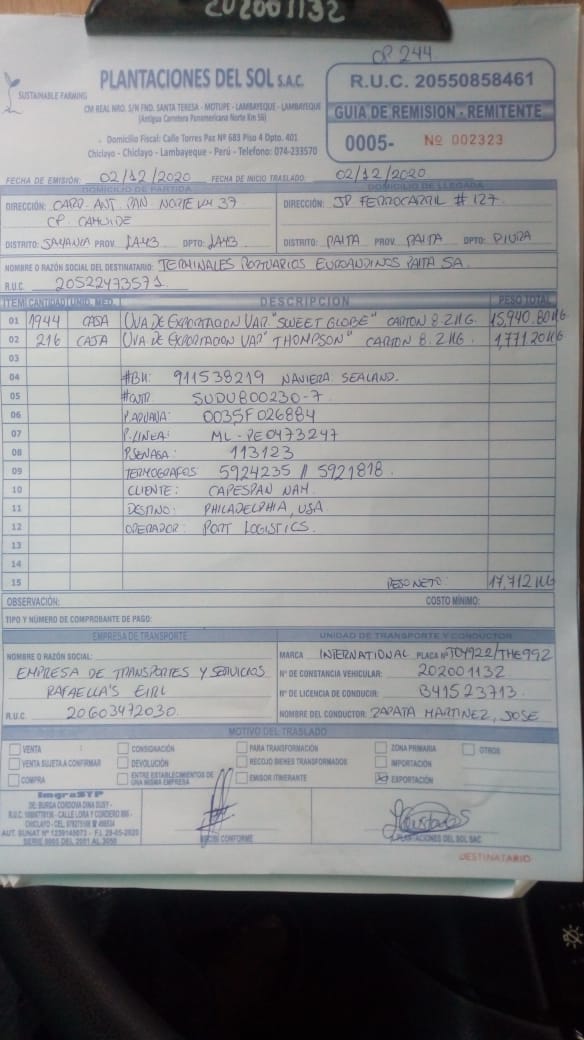 202001132
OP 244
SUSTAINABLE FARMING
PLANTACIONES DEL SOL S.A.C.
CM REAL NRO. S/N FND. SANTA TERESA - MOTUPE - LAMBAYEQUE - LAMBAYEQUE
(Antigua Carretera Panamericana Norte Km 56)
Domicilio Fiscal: Calle Torres Paz Nº 683 Piso 4 Dpto. 401
Chiclayo - Chiclayo - Lambayeque - Perú - Telefono: 074-233570
R.U.C. 20550858461
GUIA DE REMISION - REMITENTE
0005- Nº 002323
FECHA DE EMISIÓN: 02/12/2020 FECHA DE INICIO TRASLADO: 02/12/2020
DOMICILIO DE PARTIDA DOMICILIO DE LLEGADA
DIRECCIÓN: CARR. ANT. PAN NORTE KM 37 DIRECCIÓN: JR FERROCARRIL # 127
CP.
DISTRITO: PROV. DPTO: DISTRITO: PAITA PROV. PAITA DPTO: PIURA
NOMBRE O RAZÓN SOCIAL DEL DESTINATARIO: TERMINALES PORTUARIOS EUROANDINOS PAITA SA.
R.U.C. 20522473571
ITEM CANTIDAD UNID. MED. DESCRIPCION PESO TOTAL
01 1944 CAJA UVA DE EXPORTACION VAR. "SWEET GLOBE" CARTON 8.2 KG. 15,940.80 KG
02 216 CAJA UVA DE EXPORTACION VAR "THOMPSON" CARTON 8.2 KG. 1,771.20 KG
03
04 #BK: 911538219 NAVIERA SEALAND.
05 #CNTR SUDU800230-7
06 P.ADUANA: 0035F026884
07 P.LINEA: ML-PE0473247
08 P.SENASA: 113123
09 TERMOGRAFOS: 5924235 // 5921818.
10 CLIENTE: CAPESPAN NAM.
11 DESTINO: PHILADELPHIA, USA.
12 OPERADOR: PORT LOGISTICS.
13
14
15 PESO NETO: 17,712 KG
OBSERVACIÓN: COSTO MÍNIMO:
TIPO Y NÚMERO DE COMPROBANTE DE PAGO:
EMPRESA DE TRANSPORTE UNIDAD DE TRANSPORTE Y CONDUCTOR
NOMBRE O RAZÓN SOCIAL: MARCA INTERNATIONAL PLACA Nº
EMPRESA DE TRANSPORTES Y SERVICIOS Nº DE CONSTANCIA VEHICULAR: 202001132
RAFAELLA'S EIRL Nº DE LICENCIA DE CONDUCIR: B41523713.
R.U.C 20603472030. NOMBRE DEL CONDUCTOR: ZAPATA MARTINEZ, JOSE
MOTIVO DEL TRASLADO
VENTA CONSIGNACIÓN PARA TRANSFORMACIÓN ZONA PRIMARIA OTROS
VENTA SUJETA A CONFIRMAR DEVOLUCIÓN RECOJO BIENES TRANSFORMADOS IMPORTACIÓN
COMPRA ENTRE ESTABLECIMIENTOS DE UNA MISMA EMPRESA EMISOR ITINERANTE EXPORTACIÓN
DE: BURGA CORDOVA DINA SUSY -
RECIBI CONFORME
PLANTACIONES DEL SOL SAC
DESTINATARIO